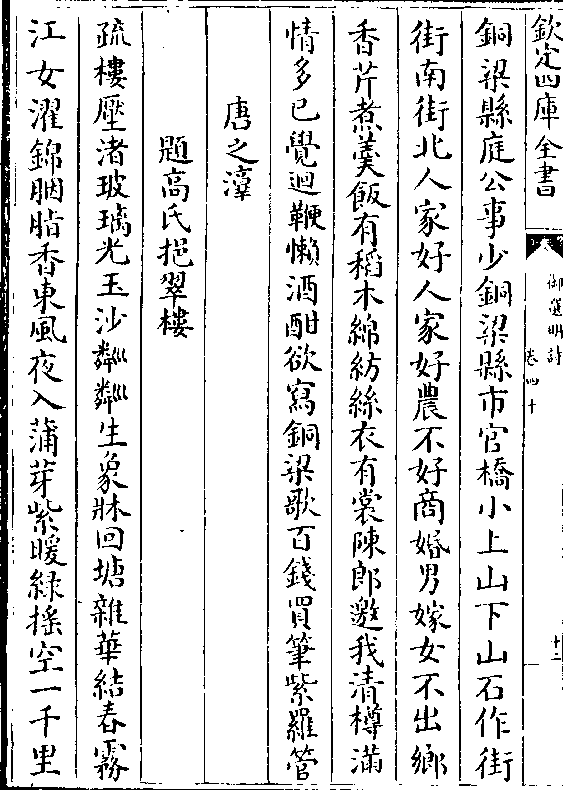 欽定四庫全書
御選明詩
卷四十
十二
銅梁縣庭公事少銅梁縣市官橋小上山下山石作街
街南街北人家好人家好農不好商婚男嫁女不出鄉
香芹煮羮飯有稻木綿紡絲衣有裳陳郎邀我清樽滿
情多已覺迴鞭懶酒酣欲寫銅梁歌百錢買筆紫羅管
唐之淳
題高氏挹翠樓
疏樓壓渚玻璃光玉沙粼粼生象牀回塘雜華結春霧
江女濯錦胭脂香東風夜入蒲芽紫暖綠搖空一千里